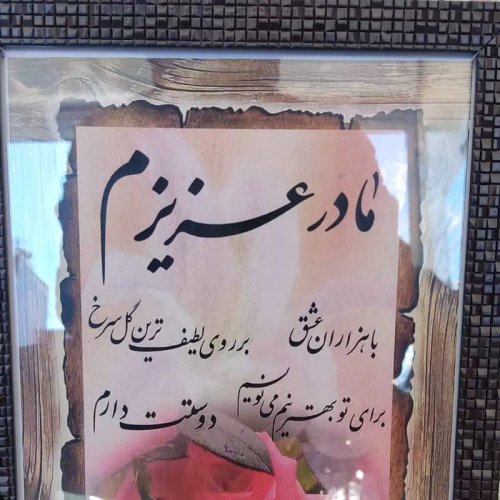 مادر عزیزم
با هزاران عشق
بر روی لطیف ترین گل سرخ
برای تو بهترینم می نویسم
دوستت دارم